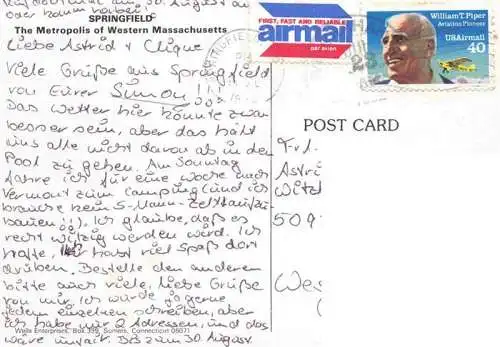 am 30. August
oder kann
SPRINGFIELD
The Metropolis of Western Massachusetts
Liebe Astrid + Clique
Viele Grüße aus Springfield
von Eurer Simon!!!
Das Wetter hier könnte zwar
besser sein, aber das hält
uns alle nicht davon ab in den
Pool zu gehen. Am Sonntag
fahre ich für eine Woche nach
Vermont zum Camping (und ich
brauche kein 5-Mann-Zelt aufzu-
bauen!!). Ich glaube, daß es
recht witzig werden wird. Ich
hoffe, ihr habt viel Spaß dort
drüben. Bestelle den anderen
bitte auch viele, liebe Grüße
von mir. Ich würde ja gerne
jedem einzelnen schreiben, aber
ich habe nur 2 Adressen, und das
wäre unfair. Bis zum 30. August
Wells Enterprises, Box 399, Somers, Connecticut 06071
FIRST, FAST AND RELIABLE
airmail
par avion
William T. Piper
Aviation Pioneer
USAirmail
40
POST CARD
Frl.
Astri
Witz
509
Wes